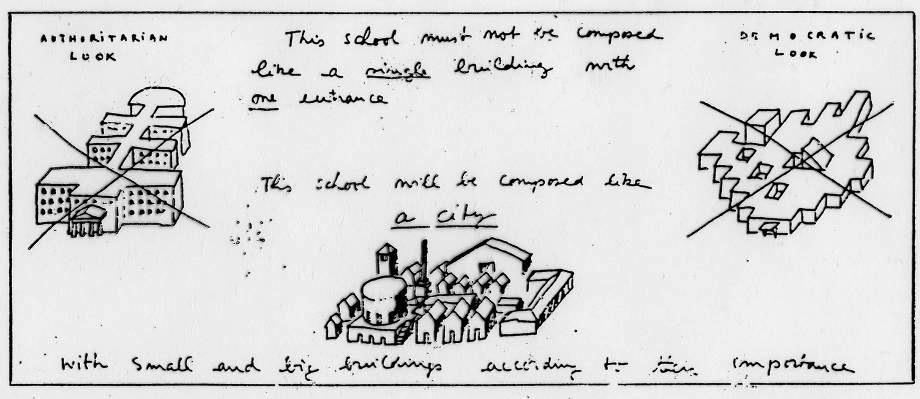 AUTHORITARIAN
LOOK
This school must not be composed
like a single building with
one entrance
DEMOCRATIC
LOOK
This school will be composed like
a city
with small and big buildings according to their importance